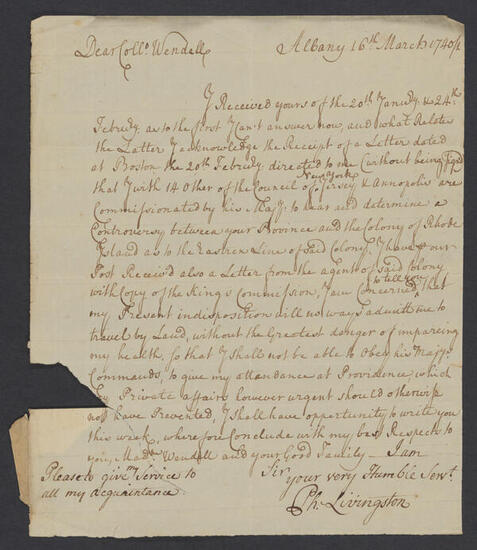 Dear Collo. Wendell
Albany 16th March 1740/1
I Received yours of the 20th Janury & 24th
Februy. as to the first I can't answer now, and what Relates
the Latter I acknowledge the Receipt of a Letter dated
at Boston the 20th Februy directed to me (without being signed
that I with 14 other of the Council of New York, Jersey & Annopolis are
Commissionated by his Majy to hear and determine a
Controversy between your Province and the Colony of Rhode
Island as to the Eastern Line of said Colony, I have # our
Post Receiv'd also a Letter from the agent of said Colony
with Copy of the Kings Commission, I am Concerned to tell you that
my Present indisposition will no ways admitt me to
travel by Land, without the Greatest danger of impareing
my health, so that I shall not be able to Obey his Majys
Commands, to give my attendance at Providence, which
my Private affairs however urgent should otherwise
not have Prevented, I shall have opportunity to write you
this week, wherefore Conclude with my best Respect to
you, Madm Wendell and your Good Family — I am
Please to give my Service to
all my acquaintance
Sir
your very Humble Servt.
Ph. Livingston